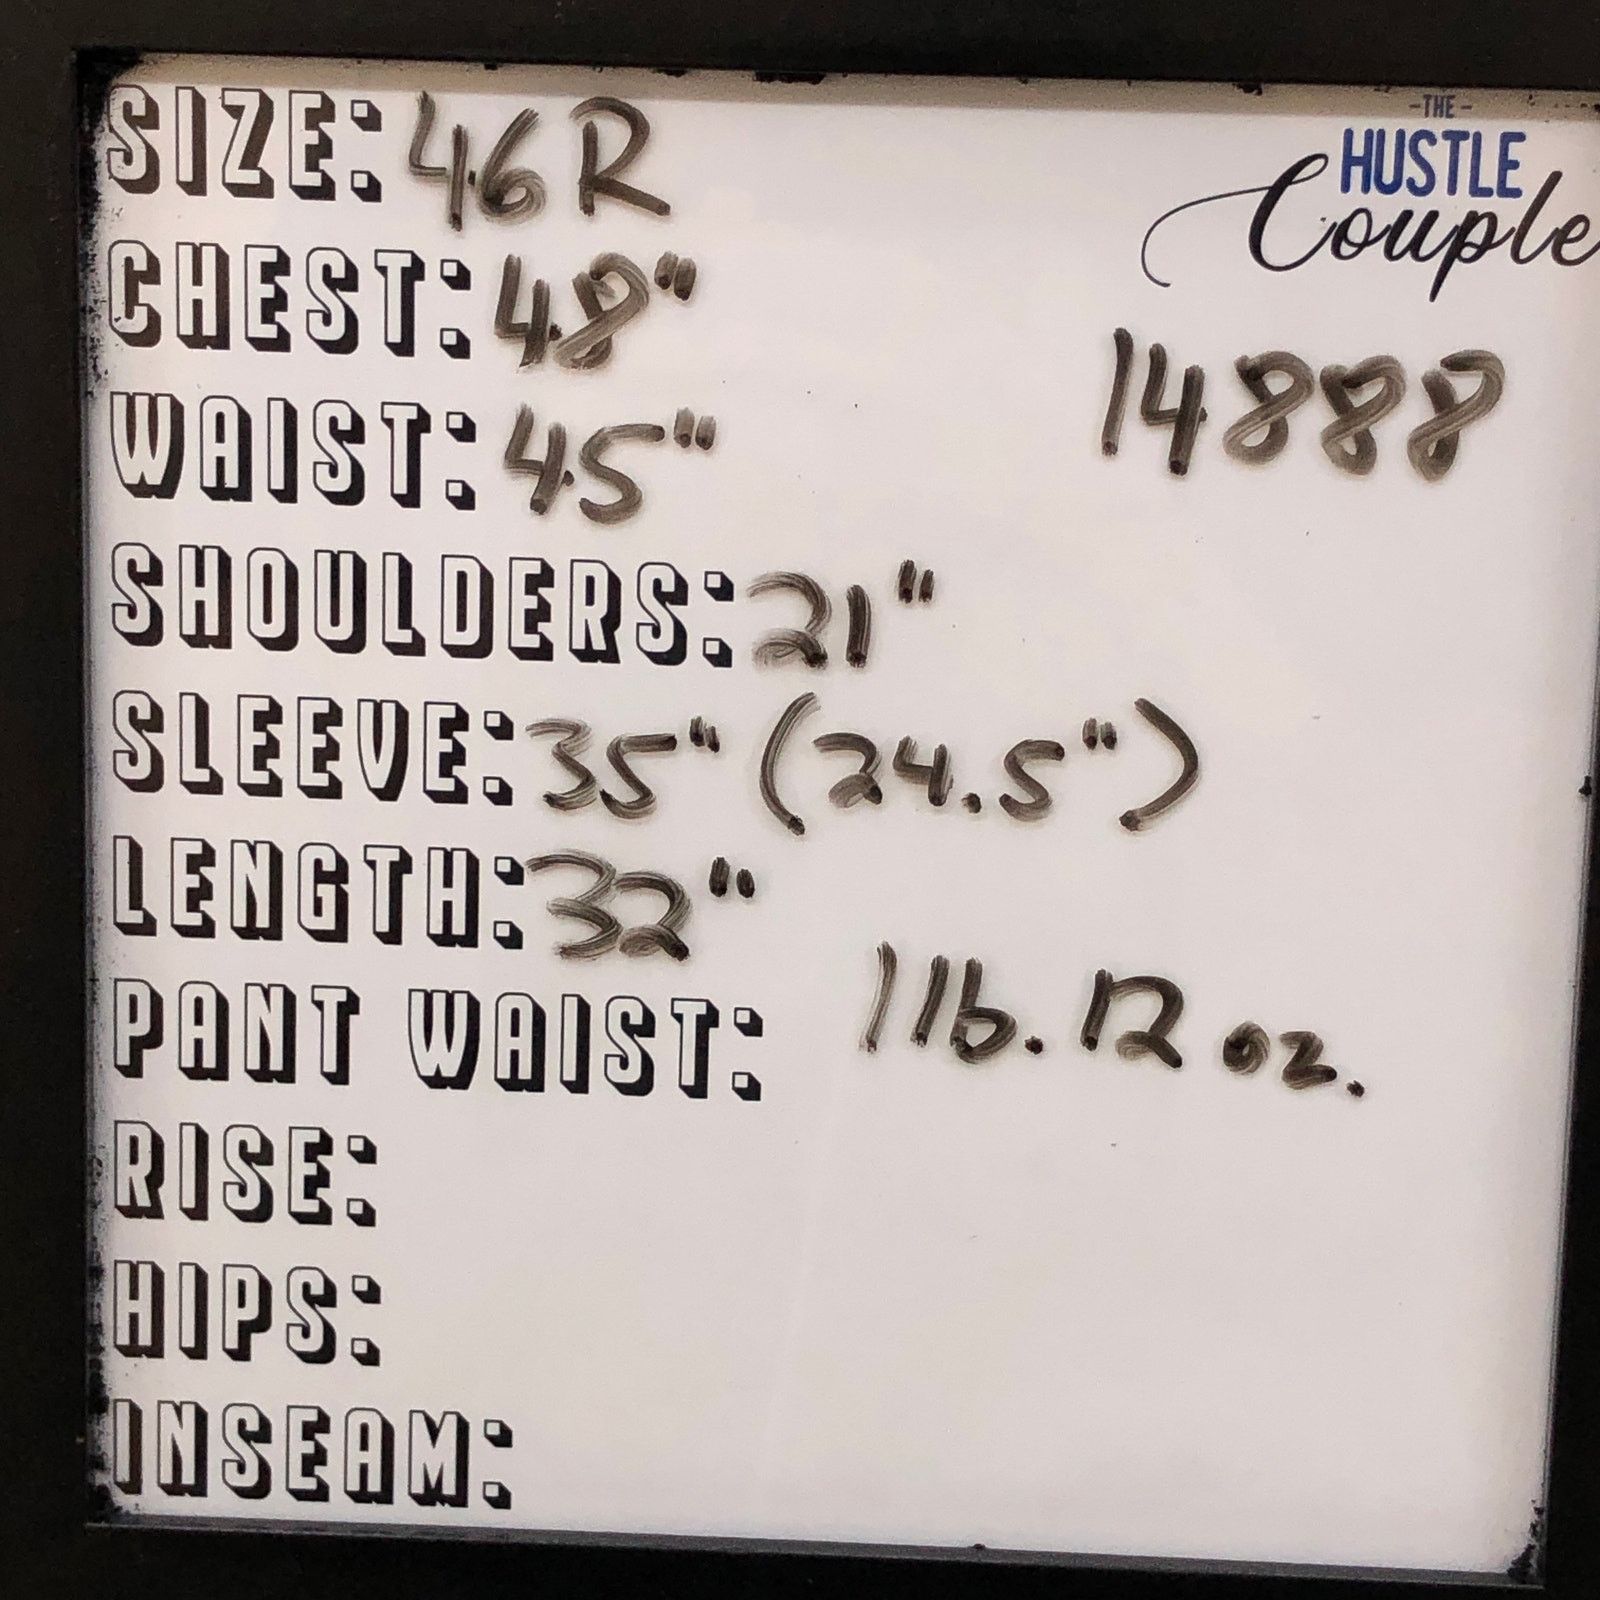 SIZE: 46R
-THE-
HUSTLE
Couple
CHEST: 48"
14888
WAIST: 45"
SHOULDERS: 21"
SLEEVE: 35" (24.5")
LENGTH: 32"
1 lb. 12 oz.
PANT WAIST:
RISE:
HIPS:
INSEAM: